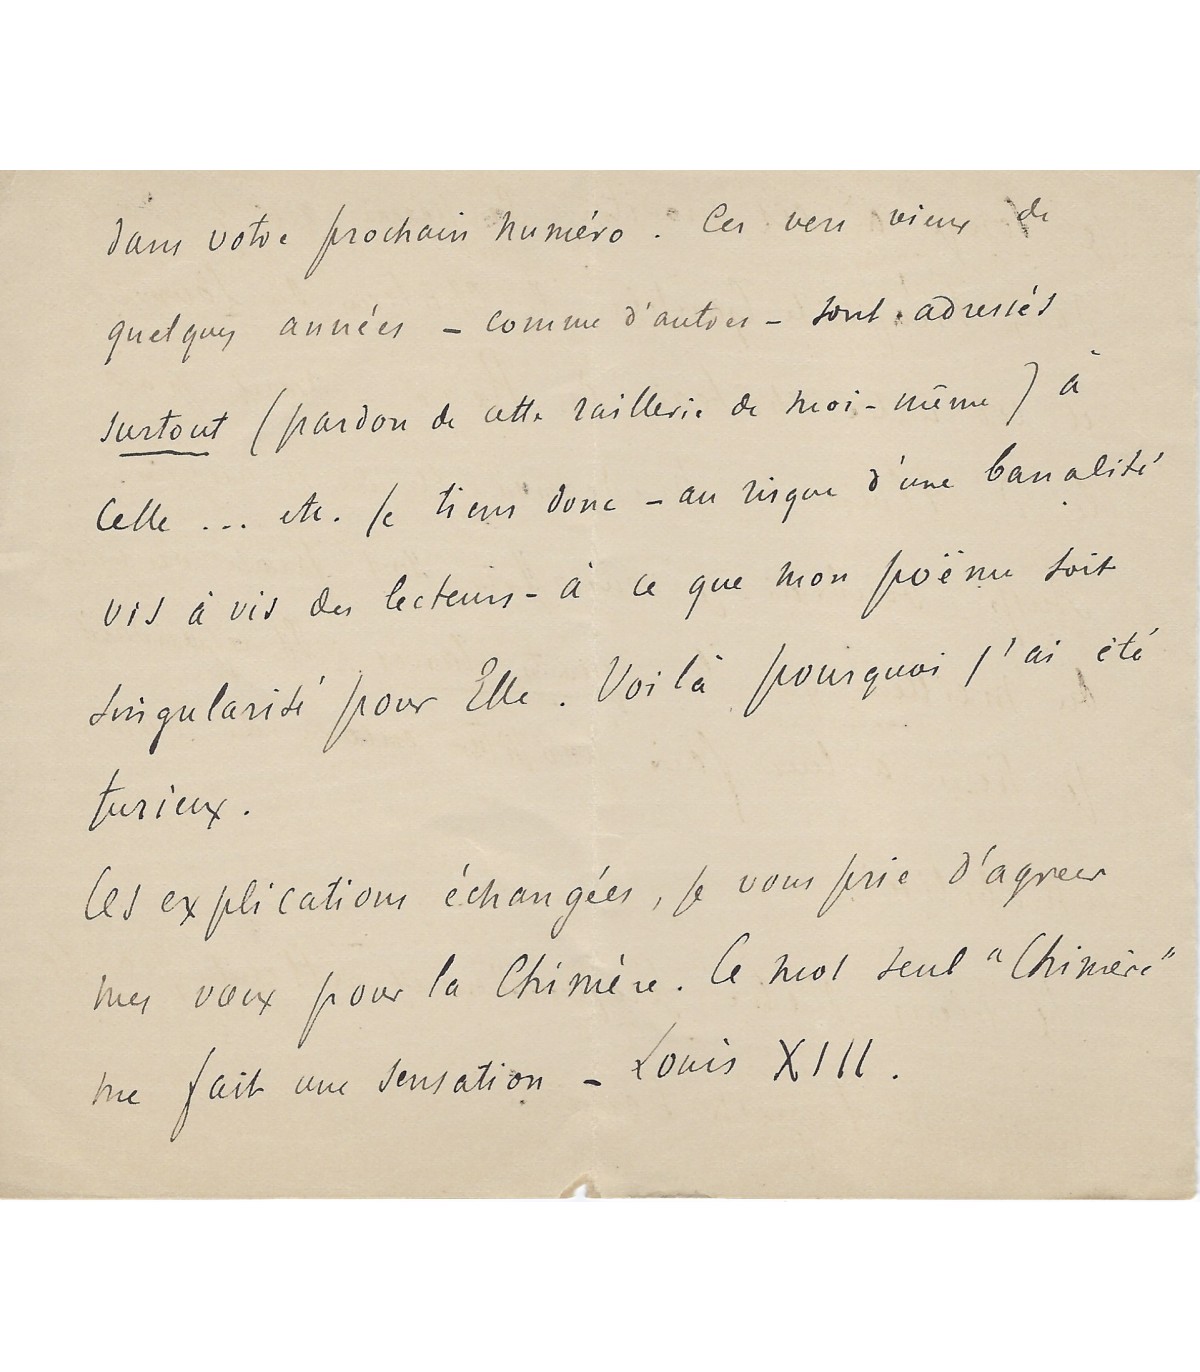 dans votre prochain numéro. Ces vers vieux de
quelques années – comme d'autres – sont adressés
surtout (pardon de cette raillerie de moi-même) à
Celle ... etc. Je tiens donc – au risque d'une banalité
vis à vis des lecteurs – à ce que mon poëme soit
singularisé pour Elle. Voilà pourquoi j'ai été
furieux.
Ces explications échangées, je vous prie d'agréer
mes vœux pour la Chimère. Ce mot seul "Chimère"
me fait une sensation – Louis XIII.